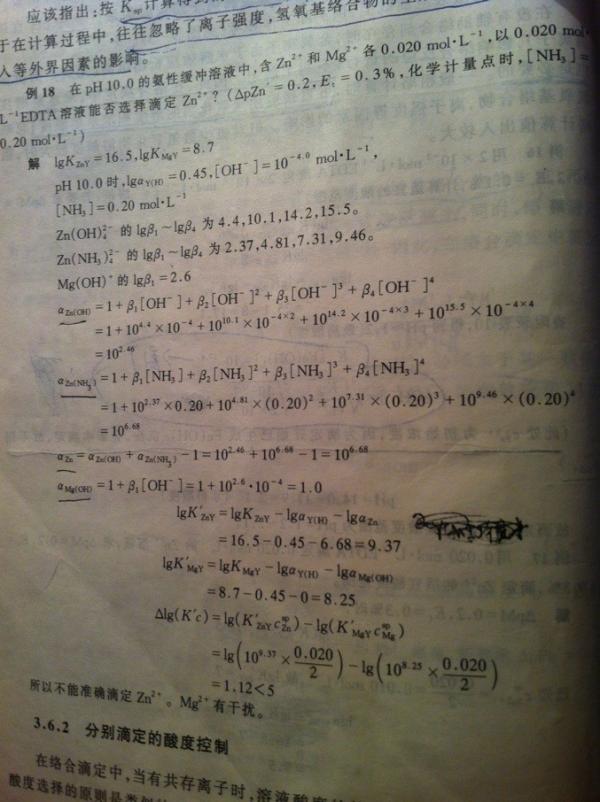 应该指出:按 K
于在计算过程中,往往忽略了离子强度,氢氧基络合物的
人等外界因素的影响。
例 18 在 pH 10.0 的氨性缓冲溶液中,含 Zn²⁺ 和 Mg²⁺ 各 0.020 mol·L⁻¹,以 0.020 mol
L⁻¹EDTA 溶液能否选择滴定 Zn²⁺?(ΔpZn = 0.2, Eₜ = 0.3%, 化学计量点时,[NH₃] =
0.20 mol·L⁻¹)
解 lgK_ZnY = 16.5, lgK_MgY = 8.7
pH 10.0 时, lgα_Y(H) = 0.45, [OH⁻] = 10⁻⁴·⁰ mol·L⁻¹,
[NH₃] = 0.20 mol·L⁻¹
Zn(OH)₄²⁻ 的 lgβ₁ ~ lgβ₄ 为 4.4, 10.1, 14.2, 15.5。
Zn(NH₃)₄²⁻ 的 lgβ₁ ~ lgβ₄ 为 2.37, 4.81, 7.31, 9.46。
Mg(OH)⁺ 的 lgβ₁ = 2.6
α_Zn(OH) = 1 + β₁[OH⁻] + β₂[OH⁻]² + β₃[OH⁻]³ + β₄[OH⁻]⁴
= 1 + 10⁴·⁴ × 10⁻⁴ + 10¹⁰·¹ × 10⁻⁴ˣ² + 10¹⁴·² × 10⁻⁴ˣ³ + 10¹⁵·⁵ × 10⁻⁴ˣ⁴
= 10²·⁴⁶
α_Zn(NH₃) = 1 + β₁[NH₃] + β₂[NH₃]² + β₃[NH₃]³ + β₄[NH₃]⁴
= 1 + 10²·³⁷ × 0.20 + 10⁴·⁸¹ × (0.20)² + 10⁷·³¹ × (0.20)³ + 10⁹·⁴⁶ × (0.20)⁴
= 10⁶·⁶⁸
α_Zn = α_Zn(OH) + α_Zn(NH₃) − 1 = 10²·⁴⁶ + 10⁶·⁶⁸ − 1 = 10⁶·⁶⁸
α_Mg(OH) = 1 + β₁[OH⁻] = 1 + 10²·⁶ · 10⁻⁴ = 1.0
lgK′_ZnY = lgK_ZnY − lgα_Y(H) − lgα_Zn
= 16.5 − 0.45 − 6.68 = 9.37
lgK′_MgY = lgK_MgY − lgα_Y(H) − lgα_Mg(OH)
= 8.7 − 0.45 − 0 = 8.25
Δlg(K′c) = lg(K′_ZnY c_Zn^sp) − lg(K′_MgY c_Mg^sp)
= lg(10⁹·³⁷ × 0.020/2) − lg(10⁸·²⁵ × 0.020/2)
= 1.12 < 5
所以不能准确滴定 Zn²⁺。Mg²⁺ 有干扰。
3.6.2 分别滴定的酸度控制
在络合滴定中,当有共存离子时,溶液酸度
酸度选择的原则是